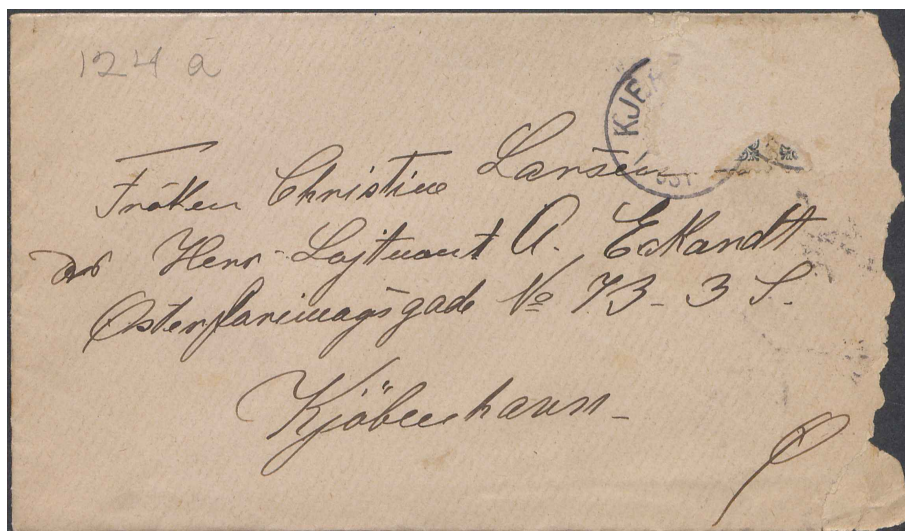 124 a
KJE
Fröken Christine Larsen
Herr Lojtnant A. Eckardt
Österfarimagsgade No 73-3 S.
Kjöbenhavn